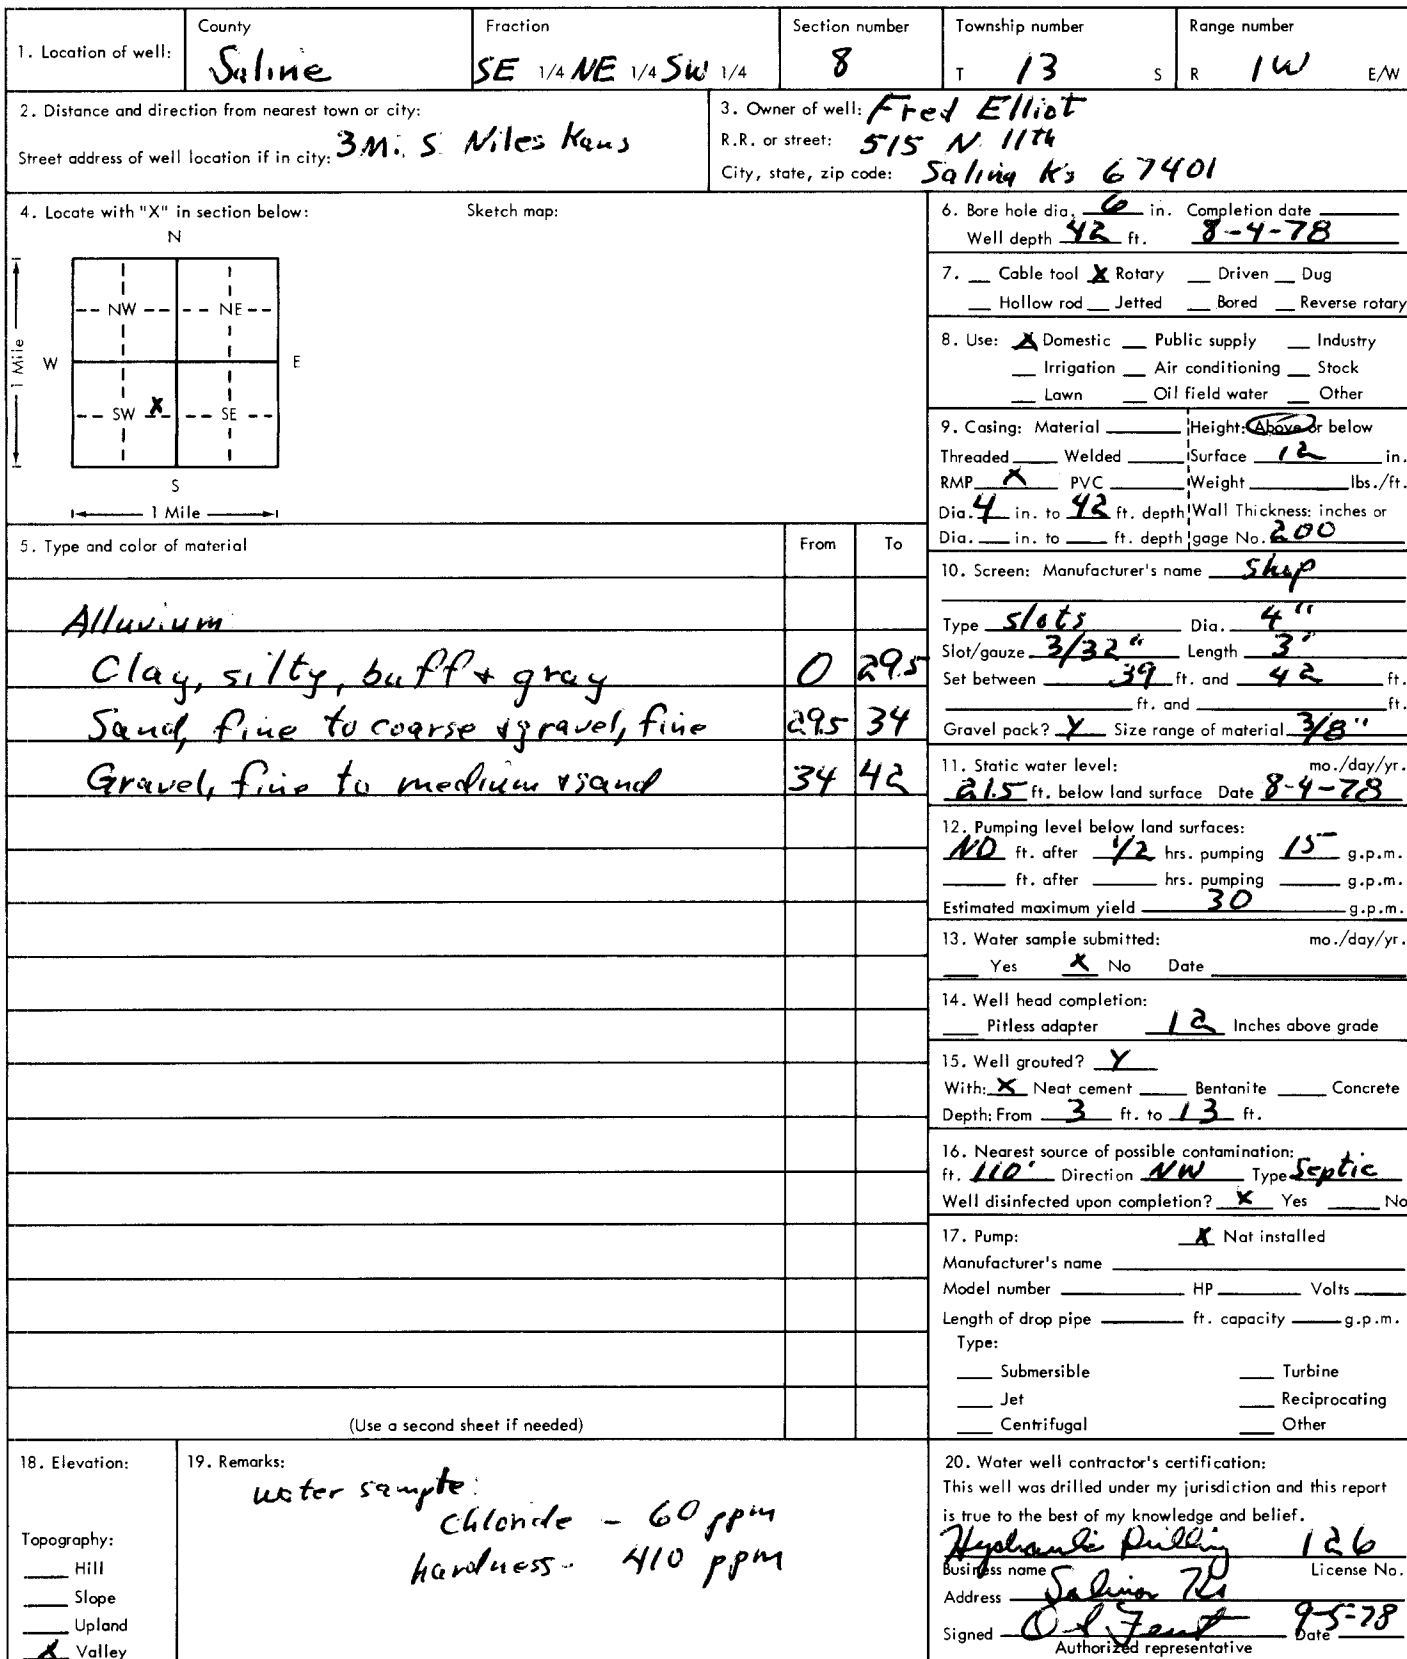 1. Location of well:
County
Saline
Fraction
SE 1/4 NE 1/4 SW 1/4
Section number
8
Township number
T 13 S
Range number
R 1W E/W
2. Distance and direction from nearest town or city:
3 Mi. S Niles Kans
Street address of well location if in city:
3. Owner of well: Fred Elliot
R.R. or street: 515 N. 11th
City, state, zip code: Salina Ks 67401
4. Locate with "X" in section below:
Sketch map:
N
NW NE
W E
SW X SE
S
1 Mile
1 Mile
5. Type and color of material From To
Alluvium
Clay, silty, buff + gray 0 29.5
Sand, fine to coarse + gravel, fine 29.5 34
Gravel, fine to medium + sand 34 42
(Use a second sheet if needed)
6. Bore hole dia. 6 in. Completion date
Well depth 42 ft. 8-4-78
7. __ Cable tool X Rotary __ Driven __ Dug
__ Hollow rod __ Jetted __ Bored __ Reverse rotary
8. Use: X Domestic __ Public supply __ Industry
__ Irrigation __ Air conditioning __ Stock
__ Lawn __ Oil field water __ Other
9. Casing: Material ____ Height: Above or below
Threaded ____ Welded ____ Surface 12 in.
RMP X PVC ____ Weight ____ lbs./ft.
Dia. 4 in. to 42 ft. depth Wall Thickness: inches or
Dia. __ in. to __ ft. depth gage No. 200
10. Screen: Manufacturer's name shop
Type slots Dia. 4"
Slot/gauze 3/32" Length 3"
Set between 39 ft. and 42 ft.
____ ft. and ____ ft.
Gravel pack? Y Size range of material 3/8"
11. Static water level: mo./day/yr.
21.5 ft. below land surface Date 8-4-78
12. Pumping level below land surfaces:
ND ft. after 1/2 hrs. pumping 15 g.p.m.
____ ft. after ____ hrs. pumping ____ g.p.m.
Estimated maximum yield 30 g.p.m.
13. Water sample submitted: mo./day/yr.
__ Yes X No Date ____
14. Well head completion:
__ Pitless adapter 12 Inches above grade
15. Well grouted? Y
With: X Neat cement ____ Bentanite ____ Concrete
Depth: From 3 ft. to 13 ft.
16. Nearest source of possible contamination:
ft. 110' Direction NW Type Septic
Well disinfected upon completion? X Yes ____ No
17. Pump: X Nat installed
Manufacturer's name ____
Model number ____ HP ____ Volts ____
Length of drop pipe ____ ft. capacity ____ g.p.m.
Type:
__ Submersible __ Turbine
__ Jet __ Reciprocating
__ Centrifugal __ Other
18. Elevation:
Topography:
__ Hill
__ Slope
__ Upland
X Valley
19. Remarks:
water sample:
Chloride - 60 ppm
hardness - 410 ppm
20. Water well contractor's certification:
This well was drilled under my jurisdiction and this report
is true to the best of my knowledge and belief.
Hydraulic Drilling 126
Business name License No.
Address Salina Ks
Signed 9-5-78 Date
Authorized representative